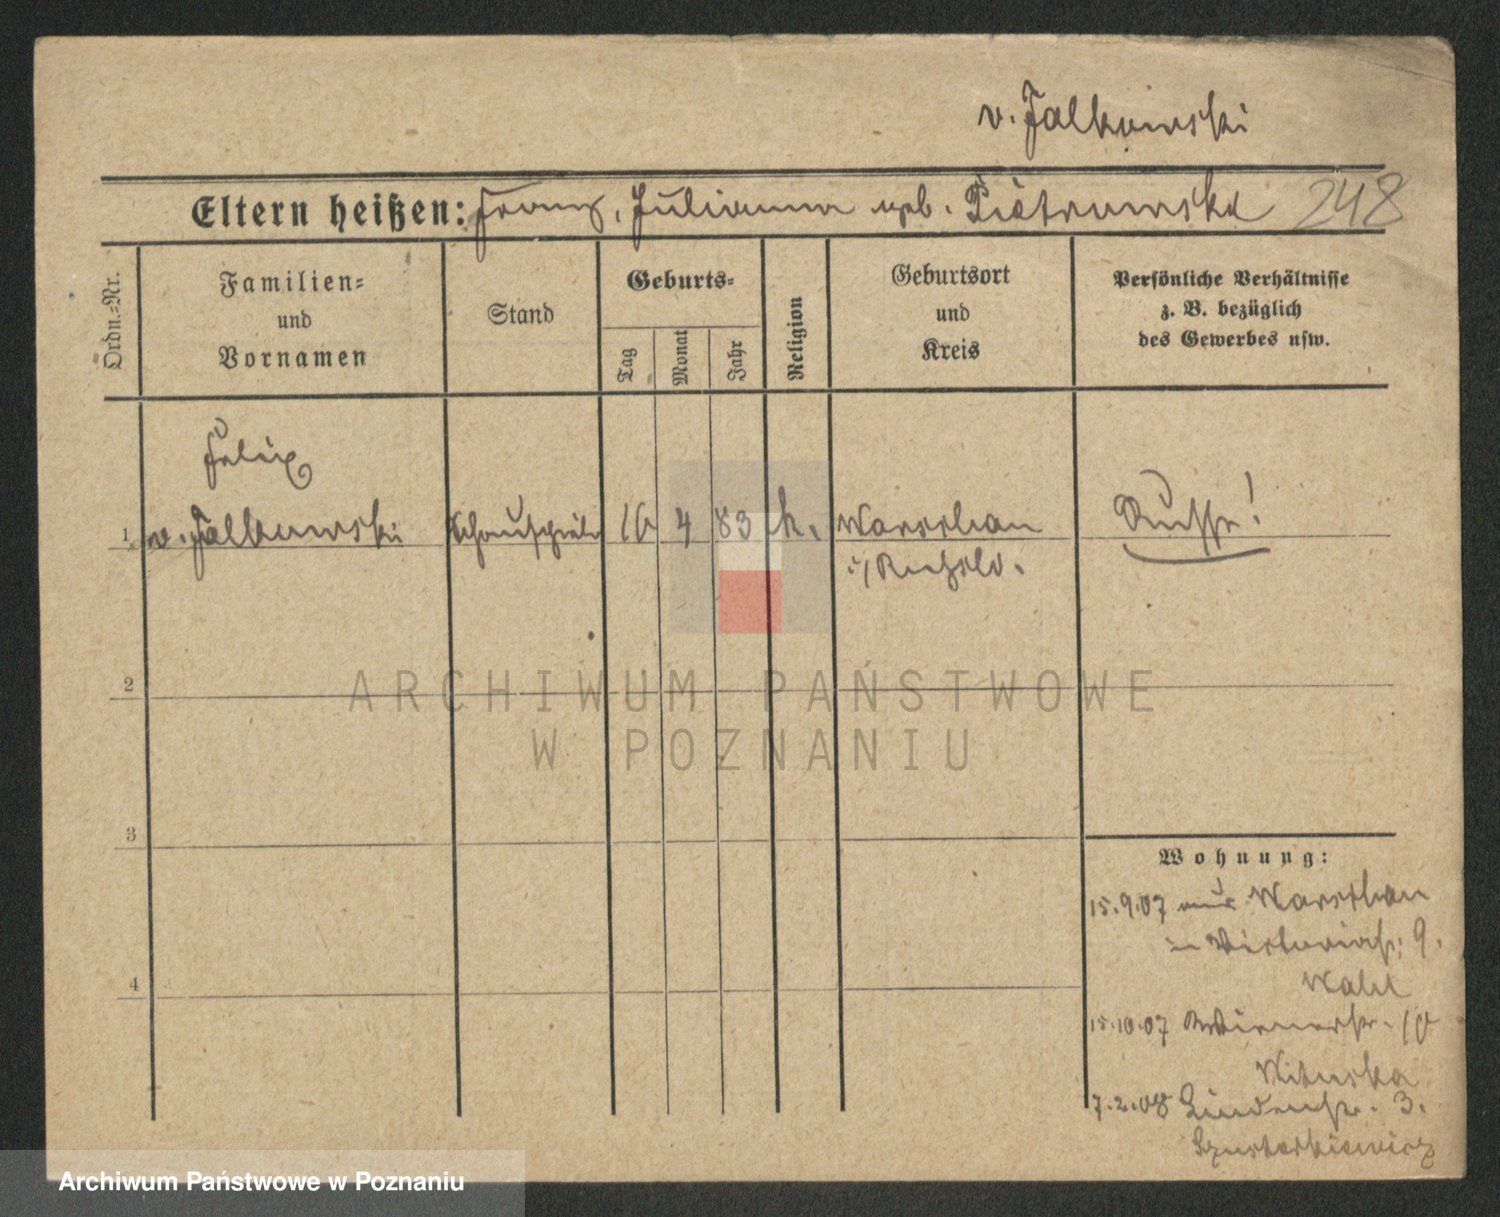 v. Falkowski
Eltern heißen: Franz, Julianna geb. Piotrowska 248
Ordn.=Nr.
Familien=
und
Vornamen
Stand
Geburts=
Tag
Monat
Jahr
Religion
Geburtsort
und
Kreis
Persönliche Verhältnisse
z. B. bezüglich
des Gewerbes usw.
Felix
1 v. Falkowski Schauspieler 10 4 83 k. Warschau Russe!
i/ Russld.
2
ARCHIWUM PAŃSTWOWE
W POZNANIU
3
Wohnung:
15.9.07 aus Warschau
in Victoriastr. 9.
15.10.07 Wienerstr. 10
4
7.2.08 Lindenstr. 3.
Szustarkiewicz
Archiwum Państwowe w Poznaniu